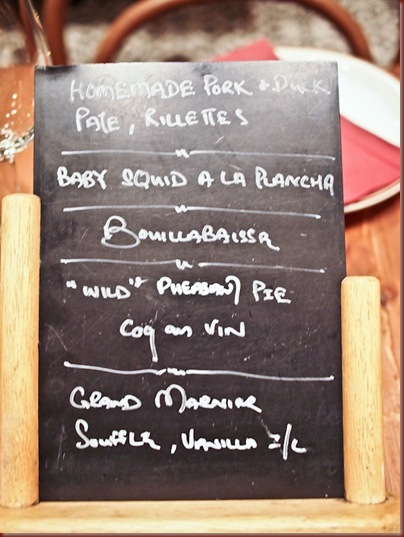 HOMEMADE PORK & DUCK
PATE, RILLETTES
BABY SQUID A LA PLANCHA
BOUILLABAISSE
"WILD" PHEASANT PIE
COQ au VIN
GRAND MARNIER
SOUFFLE, VANILLA I/C